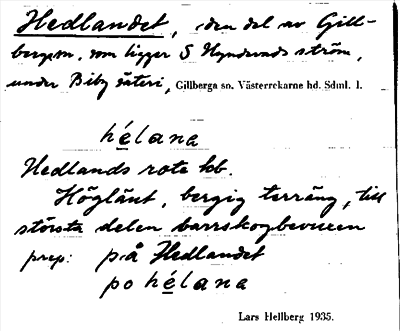 Hedlandet, den del av Gill-
bergasn. som ligger S Hyndevads ström,
under Biby säteri, Gillberga sn. Västerrekarne hd. Sdml. 1.
hélana
Hedlands rote kb.
Höglänt, bergig terräng, till
största delen barrskogbevuxen
prep: på Hedlandet
po hélana
Lars Hellberg 1935.